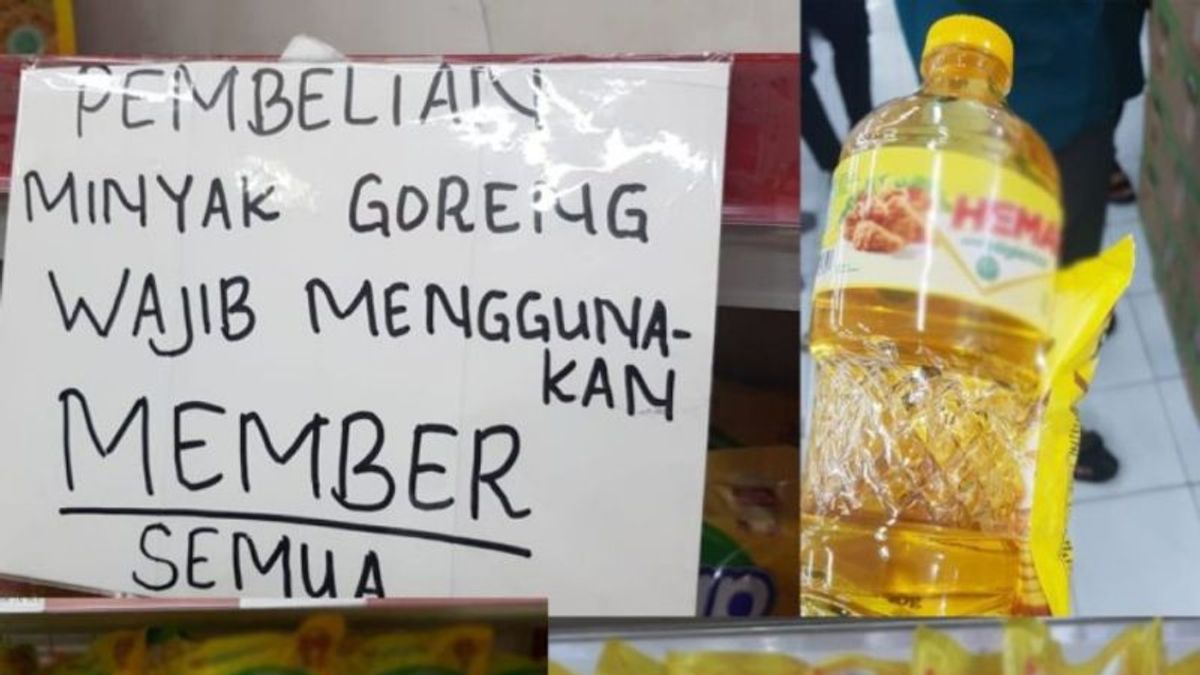 PEMBELIAN
MINYAK GORENG
WAJIB MENGGUNA-
KAN
MEMBER
SEMUA
HEMA